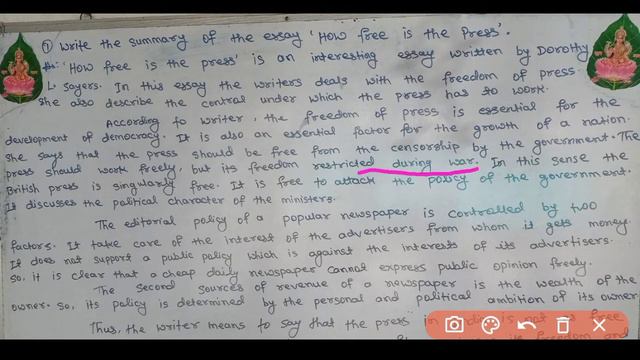 ① Write the summary of the essay 'How free is the Press'.
'How free is the press' is an interesting essay written by Dorothy
L. Sayers. In this essay the writers deals with the freedom of press.
She also describe the contral under which the press has to work.
According to writer, the freedom of press is essential for the
development of democracy. It is also an essential factor for the growth of a nation.
She says that the press should be free from the censorship by the government. The
press should work freely, but its freedom restricted during war. In this sense the
British press is singularly free. It is free to attack the policy of the government.
It discusses the political character of the ministers.
The editorial policy of a popular newspaper is controlled by two
factors. It take care of the interest of the advertisers from whom it gets money.
It does not support a public policy which is against the interests of its advertisers.
So, it is clear that a cheap daily newspaper cannot express public opinion freely.
The second sources of revenue of a newspaper is the wealth of the
owner. So, its policy is determined by the personal and political ambition of its owner
Thus, the writer means to say that the press in not free
its freedom and